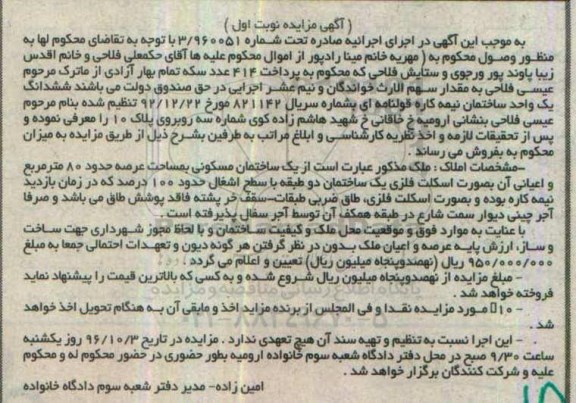 ( آگهی مزایده نوبت اول )
به موجب این آگهی در اجرای اجرائیه صادره تحت شماره ۳/۹۶۰۰۵۱ با توجه به تقاضای محکوم لها به
منظور وصول محکوم به ( مهریه خانم مینا رادپور از اموال محکوم علیه ها آقای حکمعلی فلاحی و خانم اقدس
زیبا پاوند پور ورجوی و ستایش فلاحی که محکوم به پرداخت ۴۱۴ عدد سکه تمام بهار آزادی از ماترک مرحوم
عیسی فلاحی به مقدار سهم الارث خواندگان و نیم عشر اجرایی در حق صندوق دولت می باشند ششدانگ
یک واحد ساختمان نیمه کاره قولنامه ای بشماره سریال ۸۲۱۱۴۲ مورخ ۹۲/۱۲/۲۲ تنظیم شده بنام مرحوم
عیسی فلاحی بنشانی ارومیه خ خاقانی خ شهید هاشم زاده کوی شماره سه روبروی پلاک ۱۰ را معرفی نموده و
پس از تحقیقات لازمه و اخذ نظریه کارشناسی و ابلاغ مراتب به طرفین بشرح ذیل از طریق مزایده به میزان
محکوم به بفروش می رساند .
-مشخصات املاک : ملک مذکور عبارت است از یک ساختمان مسکونی بمساحت عرصه حدود ۸۰ مترمربع
و اعیانی آن بصورت اسکلت فلزی یک ساختمان دو طبقه با سطح اشغال حدود ۱۰۰ درصد که در زمان بازدید
نیمه کاره بوده و بصورت اسکلت فلزی، طاق ضربی طبقات-سقف خر پشته فاقد پوشش طاق می باشد و صرفا
آجر چینی دیوار سمت شارع در طبقه همکف آن توسط آجر سفال پذیرفته است .
با عنایت به موارد فوق و موقعیت محل ملک و کیفیت ساختمان و با لحاظ مجوز شهرداری جهت ساخت
و ساز، ارزش پایه عرصه و اعیان ملک بدون در نظر گرفتن هر گونه دیون و تعهدات احتمالی جمعا به مبلغ
۹۵۰/۰۰۰/۰۰۰ ریال (نهصدوپنجاه میلیون ریال) تعیین و اعلام می گردد .
- مبلغ مزایده از نهصدوپنجاه میلیون ریال شروع شده و به کسی که بالاترین قیمت را پیشنهاد نماید
فروخته خواهد شد .
- ۱۰٪ مورد مزایده نقدا و فی المجلس از برنده مزاید اخذ و مابقی آن به هنگام تحویل اخذ خواهد
شد .
- این اجرا نسبت به تنظیم و تهیه سند آن هیچ تعهدی ندارد . مزایده در تاریخ ۹۶/۱۰/۳ روز یکشنبه
ساعت ۹/۳۰ صبح در محل دفتر دادگاه شعبه سوم خانواده ارومیه بطور حضوری در حضور محکوم له و محکوم
علیه و شرکت کنندگان برگزار خواهد شد .
امین زاده- مدیر دفتر شعبه سوم دادگاه خانواده